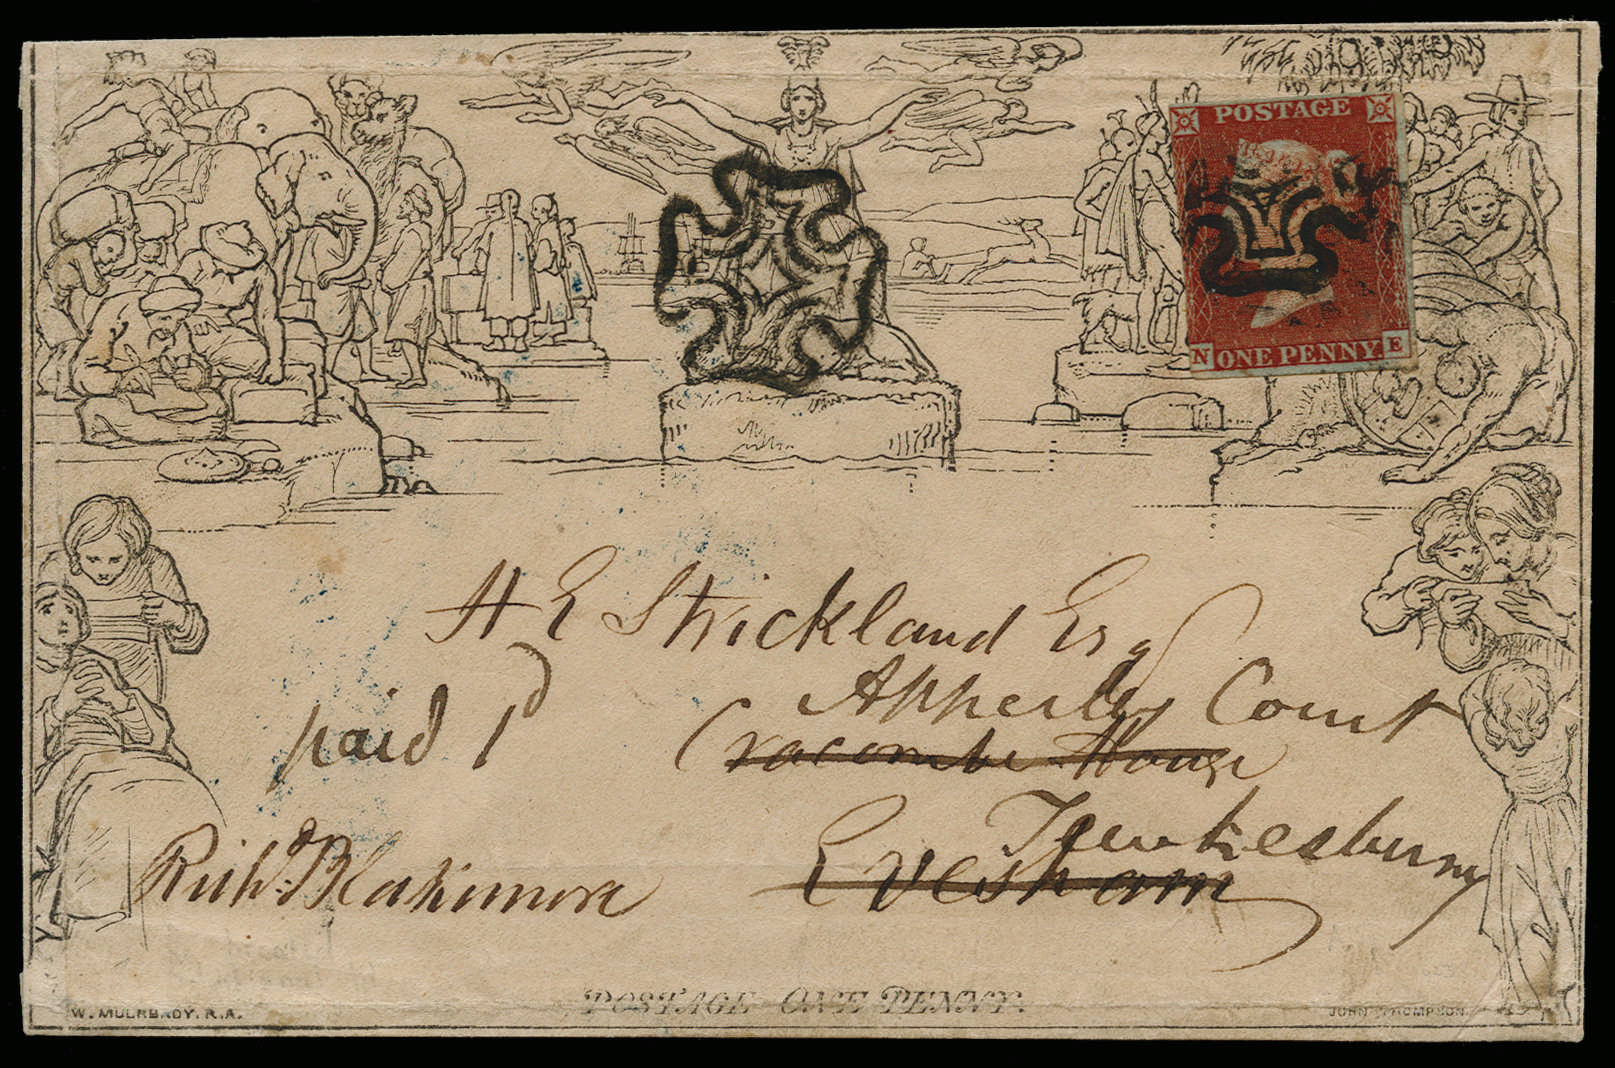 POSTAGE
N ONE PENNY E
H E Strickland Esq
Apperley Court
paid 1d Cracombe House
Tewkesbury
Evesham
Richd Blakemore
POSTAGE ONE PENNY.
W. MULREADY. R.A.
JOHN THOMPSON.